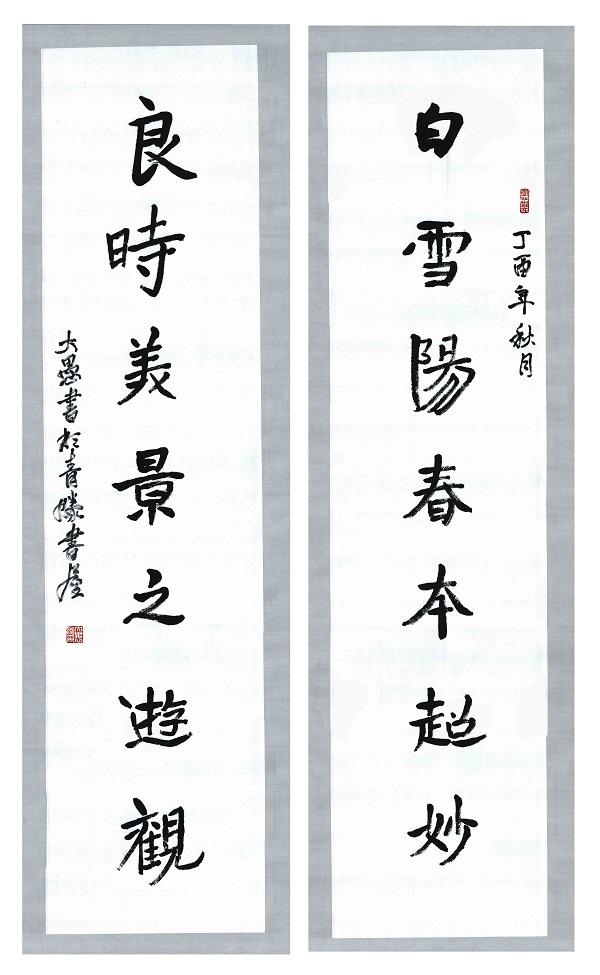 白雪陽春本超妙
丁酉年秋月
良時美景之遊觀
大愚書於青勝書屋